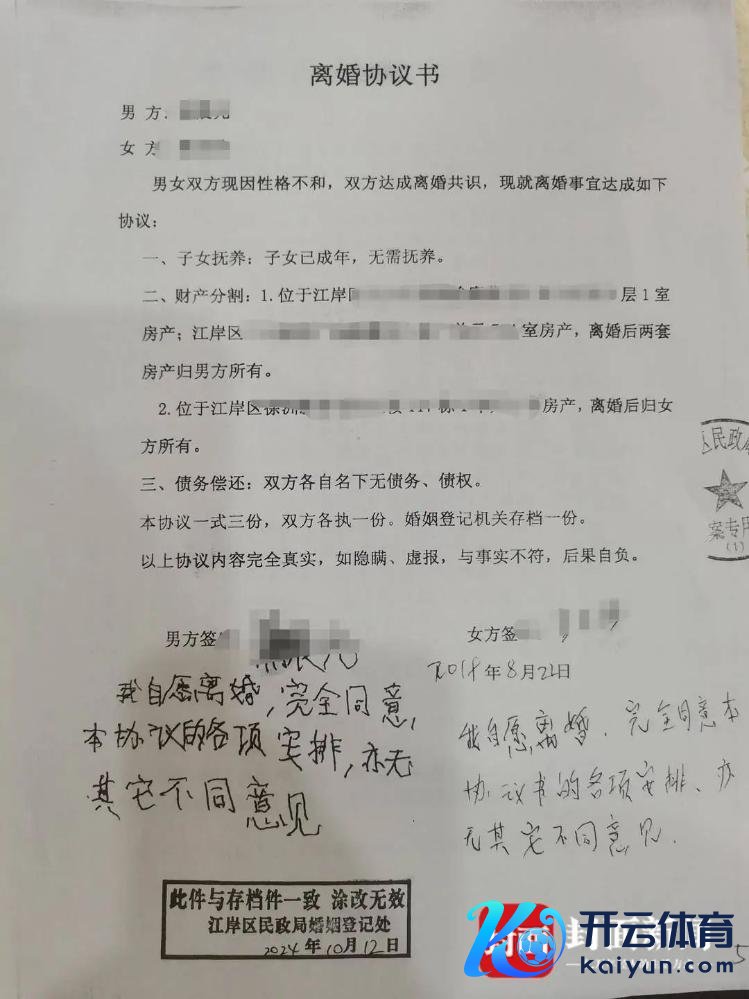 离婚协议书
男方:
女方
男女双方现因性格不和，双方达成离婚共识，现就离婚事宜达成如下
协议：
一、子女抚养：子女已成年，无需抚养。
二、财产分割：1.位于江岸 层1室
房产；江岸区 室房产，离婚后两套
房产归男方所有。
2.位于江岸区 房产，离婚后归女
方所有。
三、债务偿还：双方各自名下无债务、债权。
本协议一式三份，双方各执一份。婚姻登记机关存档一份。
以上协议内容完全真实，如隐瞒、虚报，与事实不符，后果自负。
男方签
女方签
年8月22日
我自愿离婚，完全同意
本协议的各项安排，亦无
其它不同意见
我自愿离婚、完全同意本
协议书的各项安排、亦
无其它不同意见.
区民政
案专用
(1)
此件与存档件一致 涂改无效
江岸区民政局婚姻登记处
2024年10月12日
开云体育
kaiyun.com